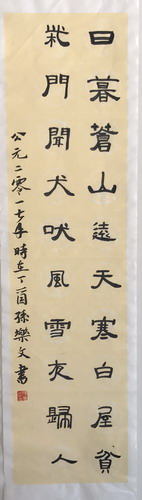 日暮蒼山遠天寒白屋貧
柴門聞犬吠風雪夜歸人
公元二零一七年時在丁酉孫樂文書